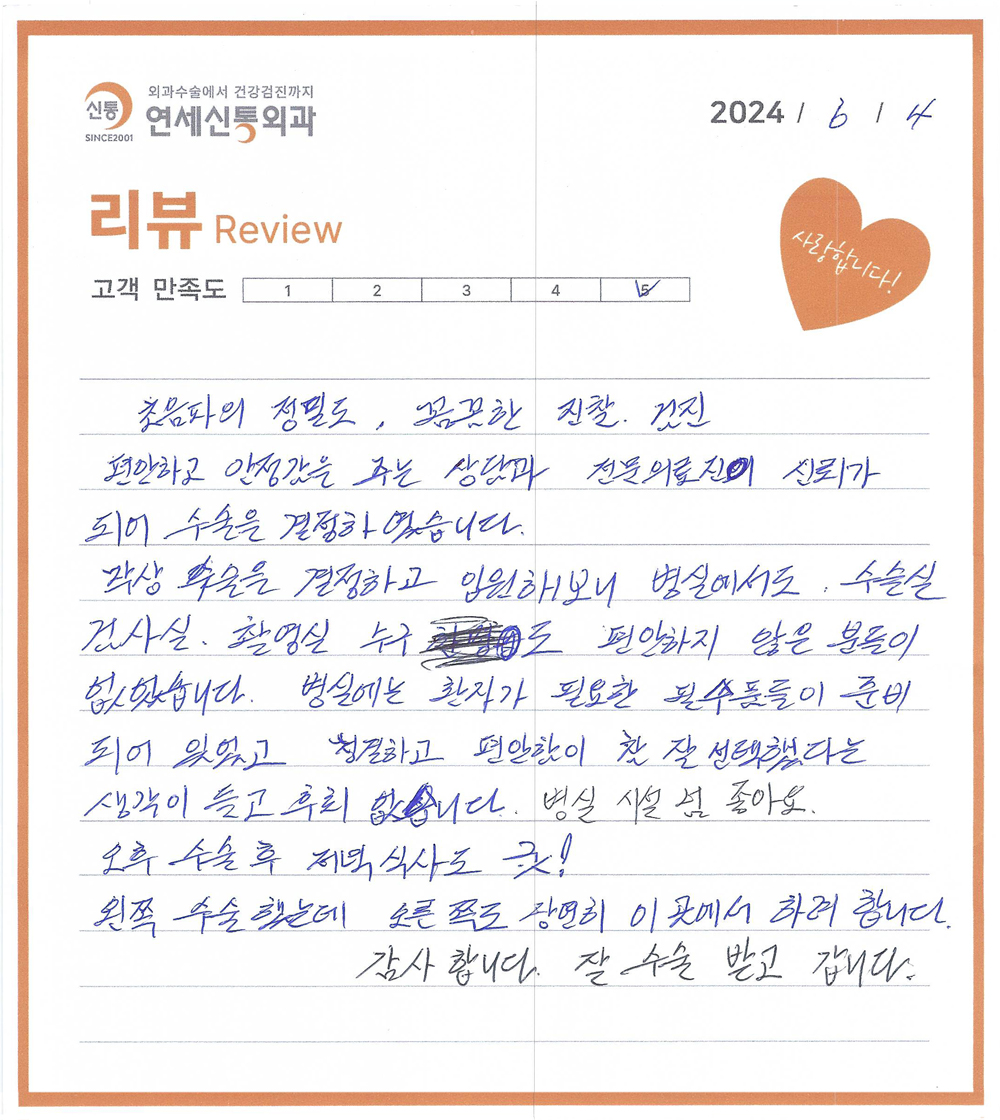 외과수술에서 건강검진까지
신통 연세신통외과
SINCE2001
2024 / 6 / 4
리뷰 Review
사랑합니다!
고객 만족도 1 2 3 4 5
초음파의 정밀도, 꼼꼼한 진찰. 검진
편안하고 안정감을 주는 상담과 전문의료진이 신뢰가
되어 수술을 결정하였습니다.
막상 수술을 결정하고 입원해보니 병실에서도. 수술실
검사실. 촬영실 누구 도 편안하지 않은 분들이
없었습니다. 병실에는 환자가 필요한 필수품들이 준비
되어 있었고 청결하고 편안함이 참 잘 선택했다는
생각이 들고 후회 없습니다. 병실 시설 넘 좋아요.
오후 수술 후 저녁식사도 굿!
왼쪽 수술했는데 오른쪽도 당연히 이 곳에서 하려 합니다.
감사합니다. 잘 수술 받고 갑니다.